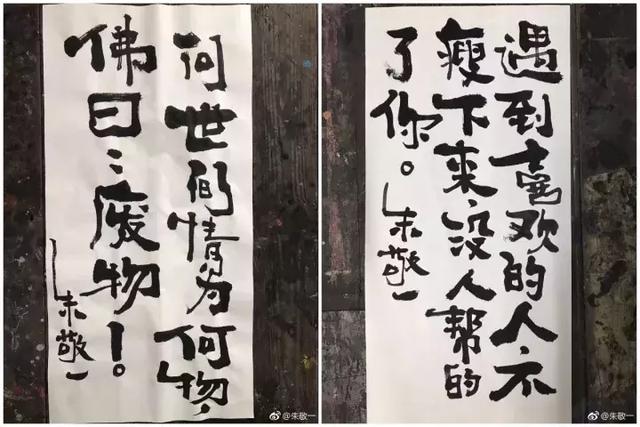 问世间情为何物，
佛曰：废物！
朱敬一
@朱敬一
遇到喜欢的人，不
瘦下来，没人帮的
了你。
朱敬一
@朱敬一